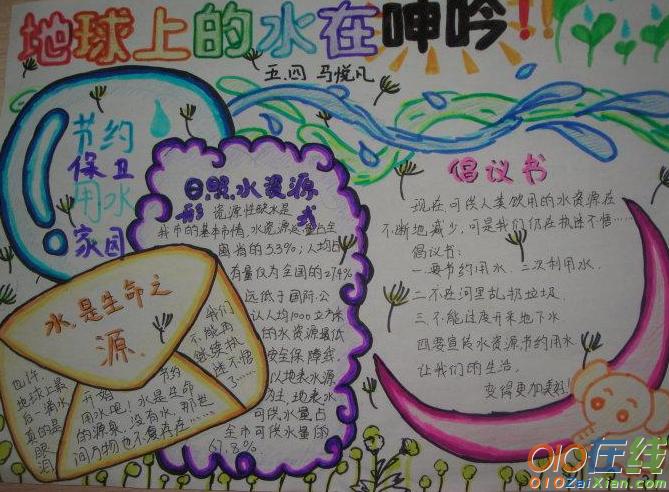 地球上的水在呻吟!!
五.四 马悦凡
节约
保卫
用水
家园
日照水资源
形 式
资源性缺水是
我市的基本市情,水资源总量占全
省的5.3%;人均占
有量仅为全国的27.4%
远低于国际公
认人均1000立方米
的水资源最低
安全保障线
以地表水源
为主,地表水
可供水量占
全市可供水量的
67.8%
倡议书
现在,可供人类饮用的水资源在
不断地减少,可是我们仍在执迷不悟……
倡议书:
一要节约用水,二次利用水.
二不在河里乱扔垃圾.
三.不能过度开采地下水
四要宣传水资源,节约用水
让我们的生活,
变得更加美好!
水是生命之
源
我们
不能再
继续执
迷不悟
了……
也许,
地球上最
后一滴水
真的是
眼泪
节约
开始
用水吧!水是生命
的源泉,没有水,那世
间万物也不复存在……
010在线
010ZaiXian.com